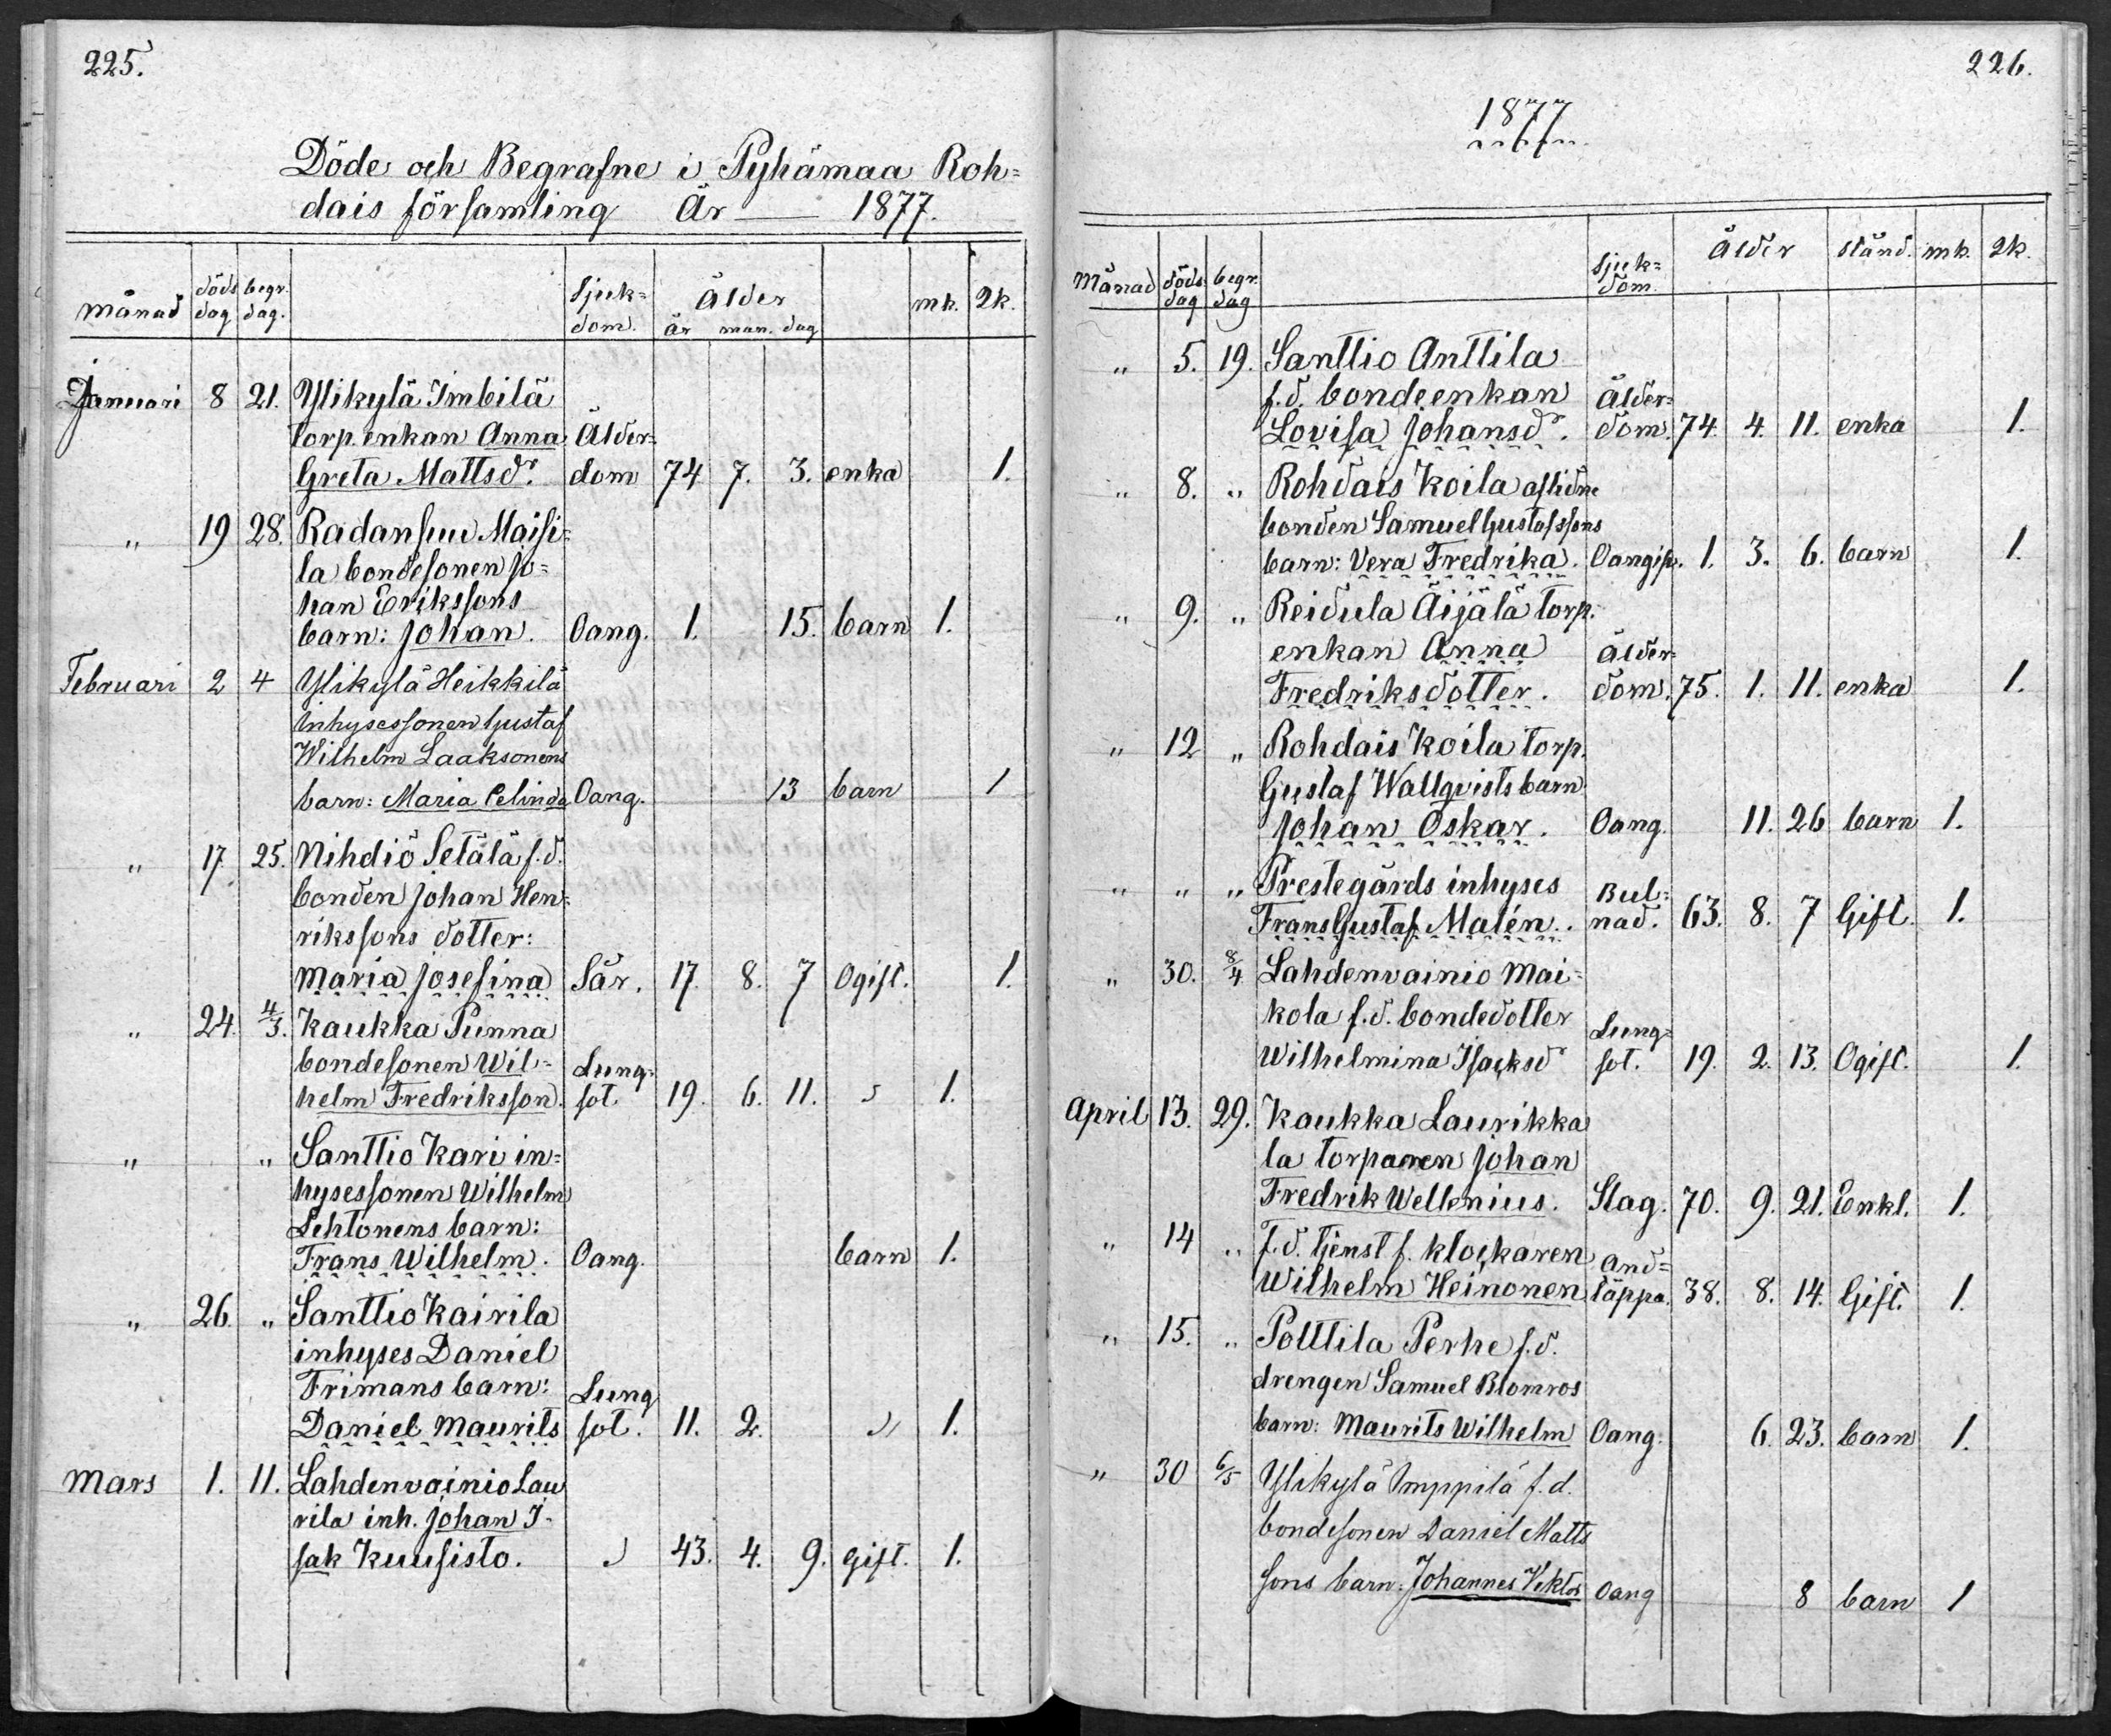 225.
Döde och Begrafne i Pyhämaa Roh=
dais församling År — 1877.
månad döds dag begr. dag. Sjuk= dom. ålder år mån. dag mk. qk.
Januari 8 21. Ylikylä Imbilä
torp. enkan Anna Ålder=
Greta Mattsdr. dom 74 7. 3. enka 1.
" 19 28. Radansuu Maisi=
la bondesonen Jo=
han Erikssons
barn: Johan. Oang. 1. 15. barn 1.
Februari 2 4 Ylikylä Heikkilä
inhysessonen Gustaf
Wilhelm Laaksonens
barn: Maria Celinda Oang. 13 barn 1
" 17 25. Nihdiö Setälä f.d.
bonden Johan Hen=
rikssons dotter:
Maria Josefina Sår. 17. 8. 7 Ogift. 1.
" 24. 4/3. Kaukka Punna
bondesonen Wil= Lung=
helm Fredriksson. sot. 19. 6. 11. " 1.
" " Santtio Kari in=
hysessonen Wilhelm
Lehtonens barn:
Frans Wilhelm. Oang. barn 1.
" 26. " Santtio Kairila
inhyses Daniel
Frimans barn: Lung
Daniel Maurits sot. 11. 2. " 1.
Mars 1. 11. Lahdenvainio Lau
rila inh. Johan I-
sak Kuusisto. " 43. 4. 9. Gift. 1.
226.
1877
Månad döds dag begr. dag Sjuk= dom. ålder stånd. mk. qk.
" 5. 19. Santtio Anttila
f.d. bondeenkan Ålder=
Lovisa Johansdr. dom. 74. 4. 11. enka 1.
" 8. " Rohdais Koila aflidne
bonden Samuel Gustafssons
barn: Vera Fredrika. Oangifv. 1. 3. 6. barn 1.
" 9. " Reidula Äijälä torp.
enkan Anna Ålder=
Fredriksdotter. dom. 75. 1. 11. enka 1.
" 12 " Rohdais Koila torp.
Gustaf Wallqvists barn
Johan Oskar. Oang. 11. 26 barn 1.
" " " Prestegårds inhyses Bul=
Frans Gustaf Malén. nad. 63. 8. 7 Gift. 1.
" 30. 8/4 Lahdenvainio Mai=
kola f.d. bondedotter Lung=
Wilhelmina Isacksdr sot. 19. 2. 13. Ogift. 1.
April 13. 29. Kaukka Laurikka
la torparen Johan
Fredrik Wellenius. Slag. 70. 9. 21. Enkl. 1.
" 14 " f.d. tjenst f. klockaren And=
Wilhelm Heinonen täppa. 38. 8. 14. Gift. 1.
" 15. " Polttila Perhe f.d.
drengen Samuel Blomros
barn: Maurits Wilhelm Oang. 6. 23. barn 1.
" 30 6/5 Ylikylä Imppilä f.d.
bondesonen Daniel Matts
sons barn: Johannes Viktor Oang 8 barn 1